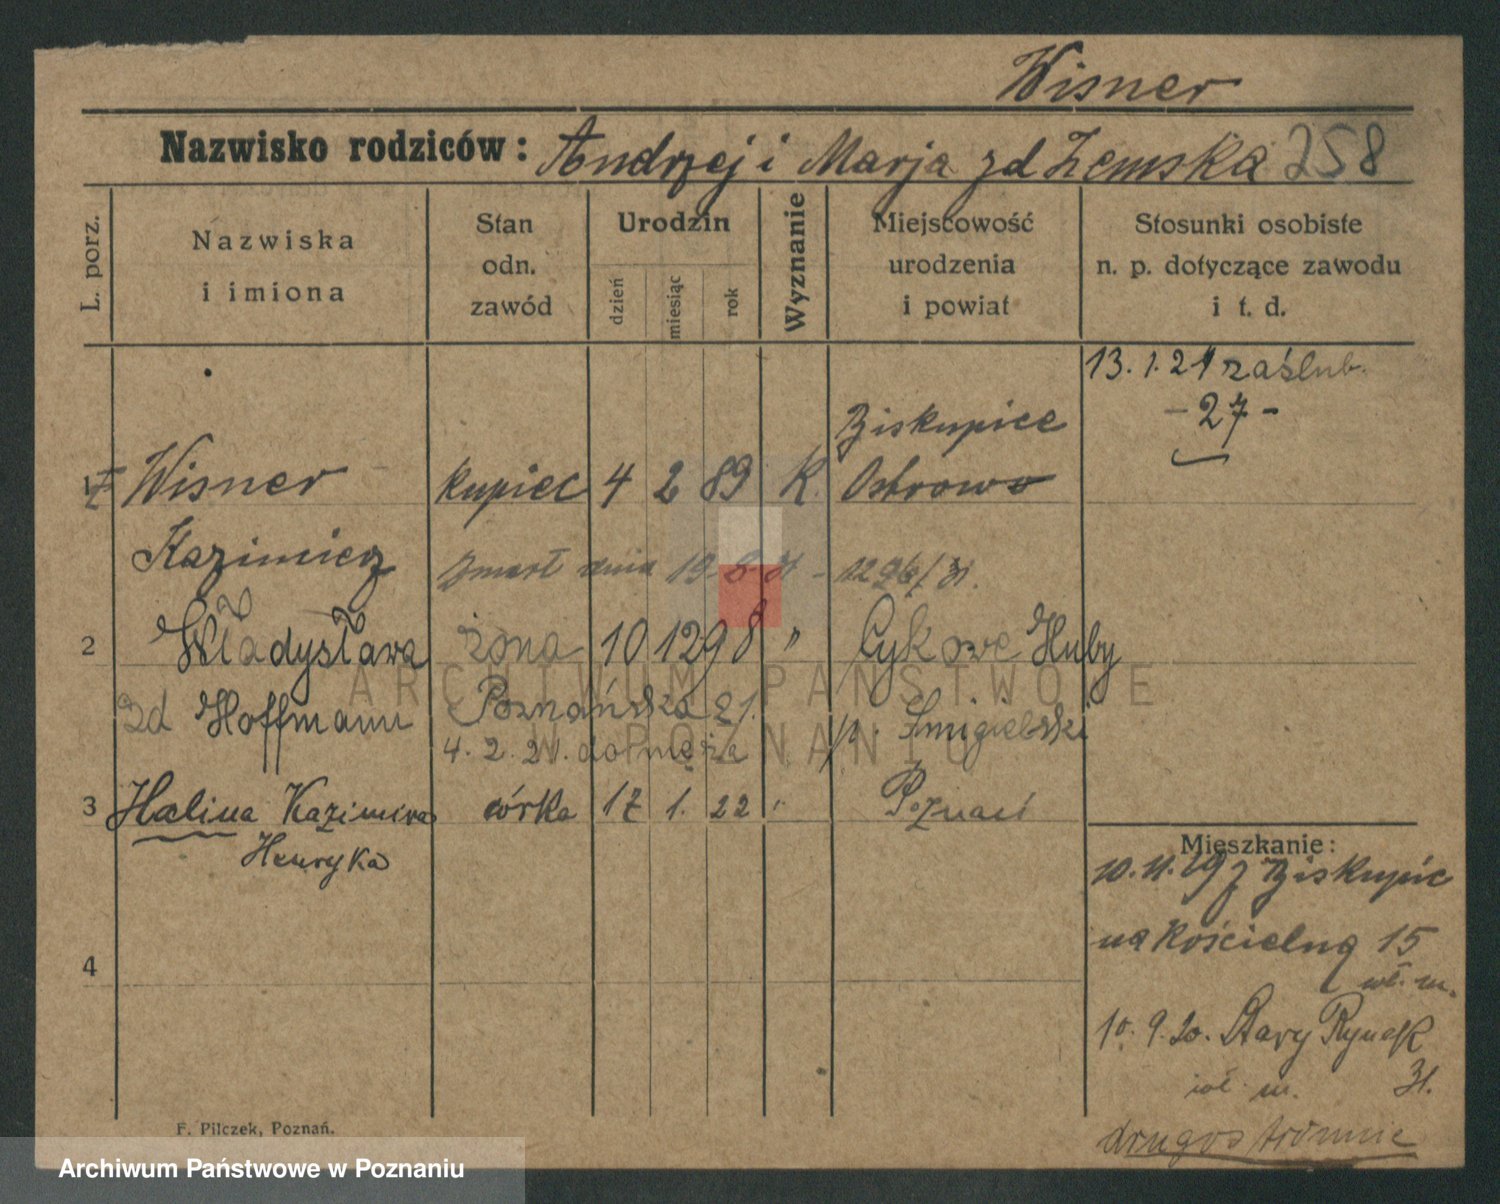 Wisner
Nazwisko rodziców: Andrzej i Marja zd Zemska 258
L. porz.
Nazwiska
i imiona
Stan
odn.
zawód
Urodzin
dzień
miesiąc
rok
Wyznanie
Miejscowość
urodzenia
i powiat
Stosunki osobiste
n. p. dotyczące zawodu
i t. d.
13. 1. 21 zaślub.
- 27 -
Biskupice
1 Wisner kupiec 4 2 89 K. Ostrowo
Kazimierz zmarł dnia 19. 31 -
2 Władysława żona 10 12 98 " Cykowe Huby
zd Hoffmann Poznańska 21. p. Śmigielski
4. 2. 21. do męża
3 Halina Kazimira córka 17 1. 22 " Poznań
Henryka
4
Mieszkanie:
10. 11. 19 z Biskupic
na Kościelną 15
wł. m.
10. 9. 20. Stary Rynek
31.
wł. m.
drugostronnie
F. Pilczek, Poznań.
ARCHIWUM PAŃSTWOWE
W POZNANIU
Archiwum Państwowe w Poznaniu